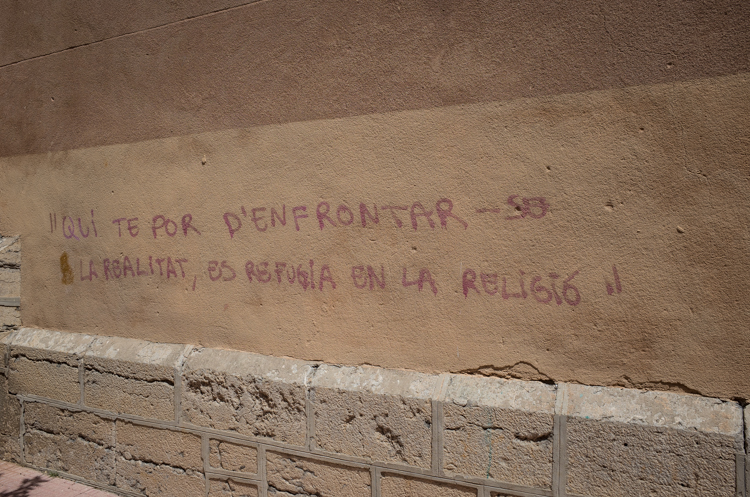 "QUI TE POR D'ENFRONTAR-SE
A LA REALITAT, ES REFUGIA EN LA RELIGIÓ"